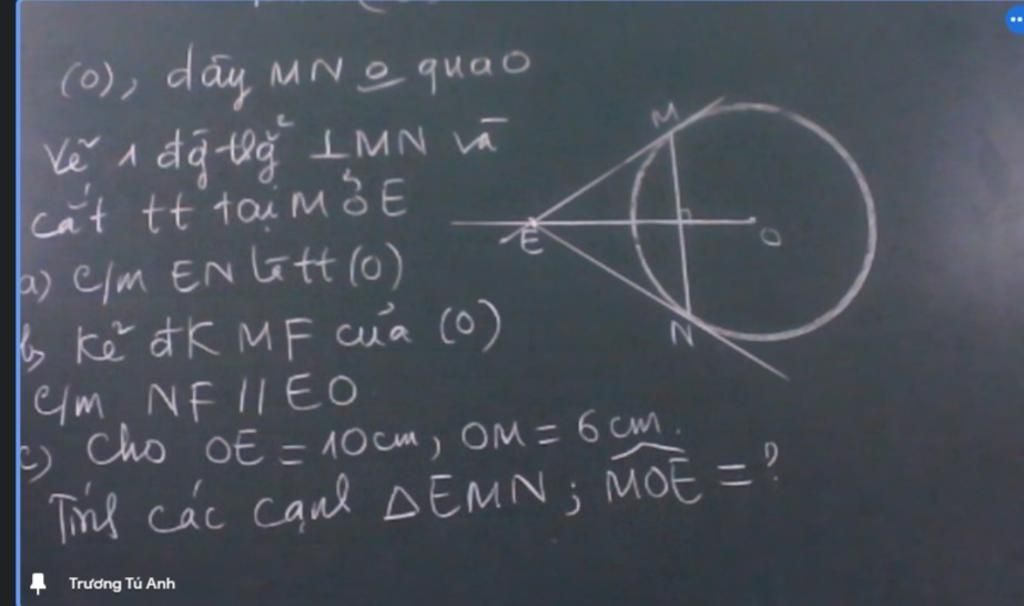 (O), dây MN o quaO
Vẽ 1 đg thg ⊥MN và
cắt tt tại M ở E
a) C/m EN là tt (O)
b) Kẻ đK MF của (O)
C/m NF // EO
c) Cho OE = 10cm, OM = 6cm.
Tính các cạnh △EMN; \widehat{MOE} = ?
M
E
O
N
Trương Tú Anh